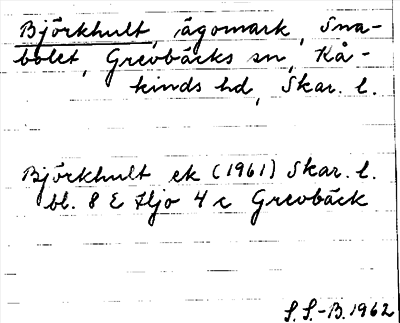 Björkhult, ägomark, Sna-
bolet, Grevbäcks sn, Kå-
kinds hd, Skar. l.
Björkhult ek (1961) Skar. l.
bl. 8 E Hjo 4 c Grevbäck
S. S.-B. 1962